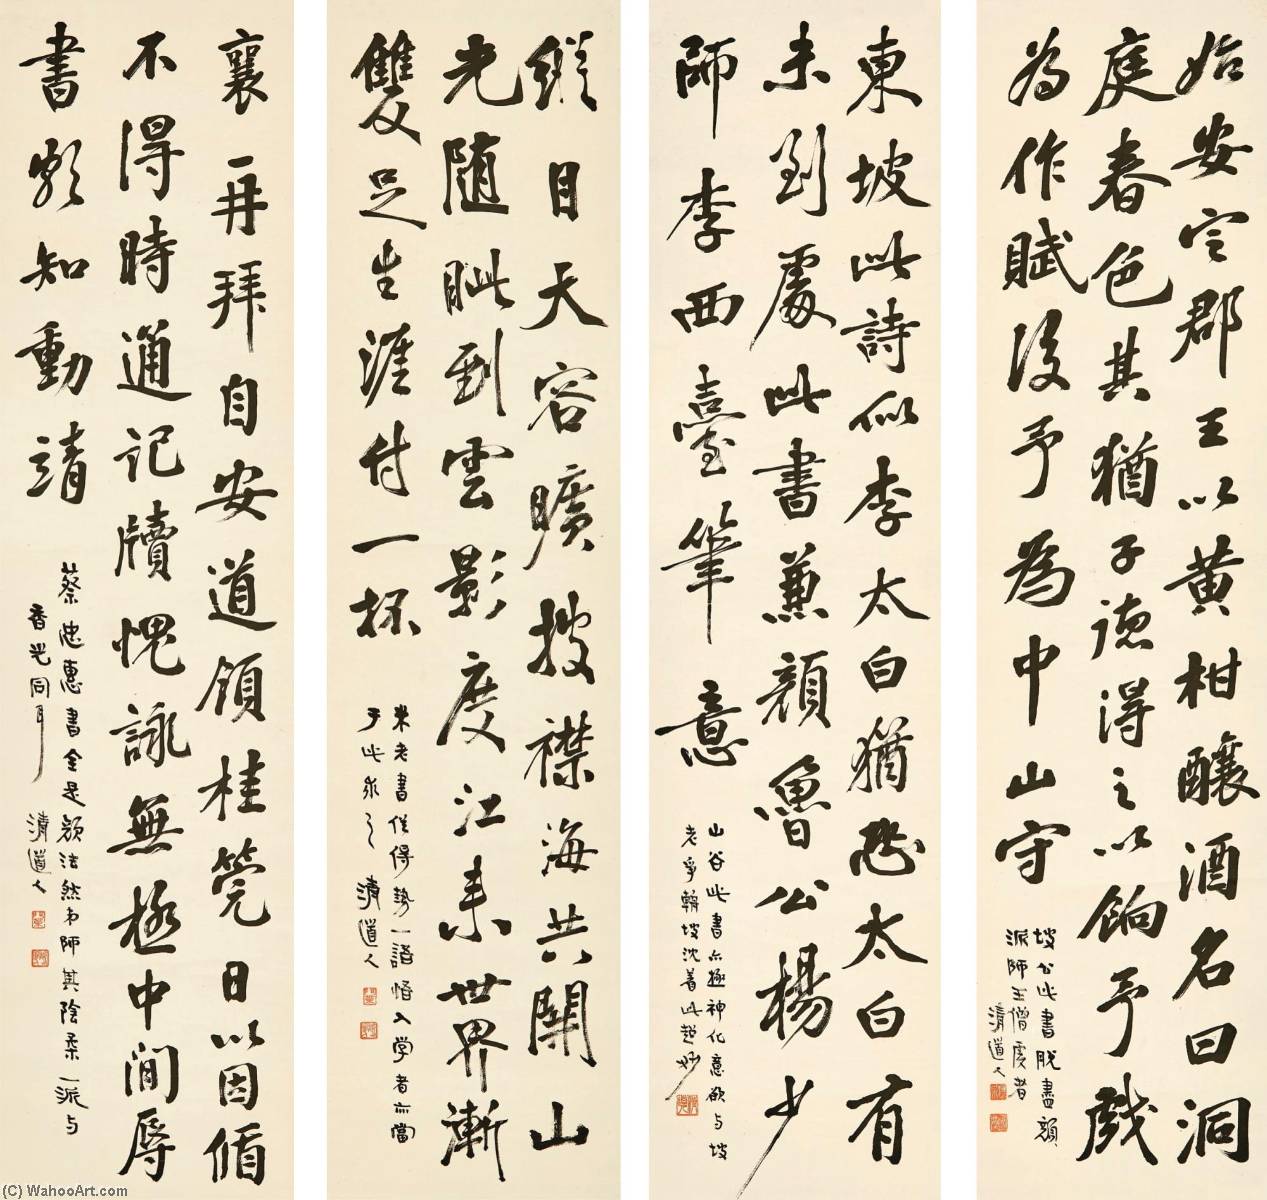 始安定郡王以黄柑釀酒名曰洞
庭春色其猶子德得之以餉予戲
為作賦後予為中山守
坡公此書脫盡顏
派師王僧虔者
清道人
東坡此詩似李太白猶恐太白有
未到處此書兼顏魯公楊少
師李西臺筆意
山谷此書亦極神化意欲与坡
老爭翰坡沈着此超妙
縱目天容曠披襟海共開山
光隨眦到雲影度江來世界漸
雙足生涯付一杯
米老書從得勢一語悟入学者亦當
于此求之
清道人
襄再拜自安道領桂筦日以因循
不得時通記牘愧詠無極中間辱
書頗知動靖
蔡忠惠書全是顏法然弟師其陰柔一派与
香光同耳
清道人
(C) WahooArt.com